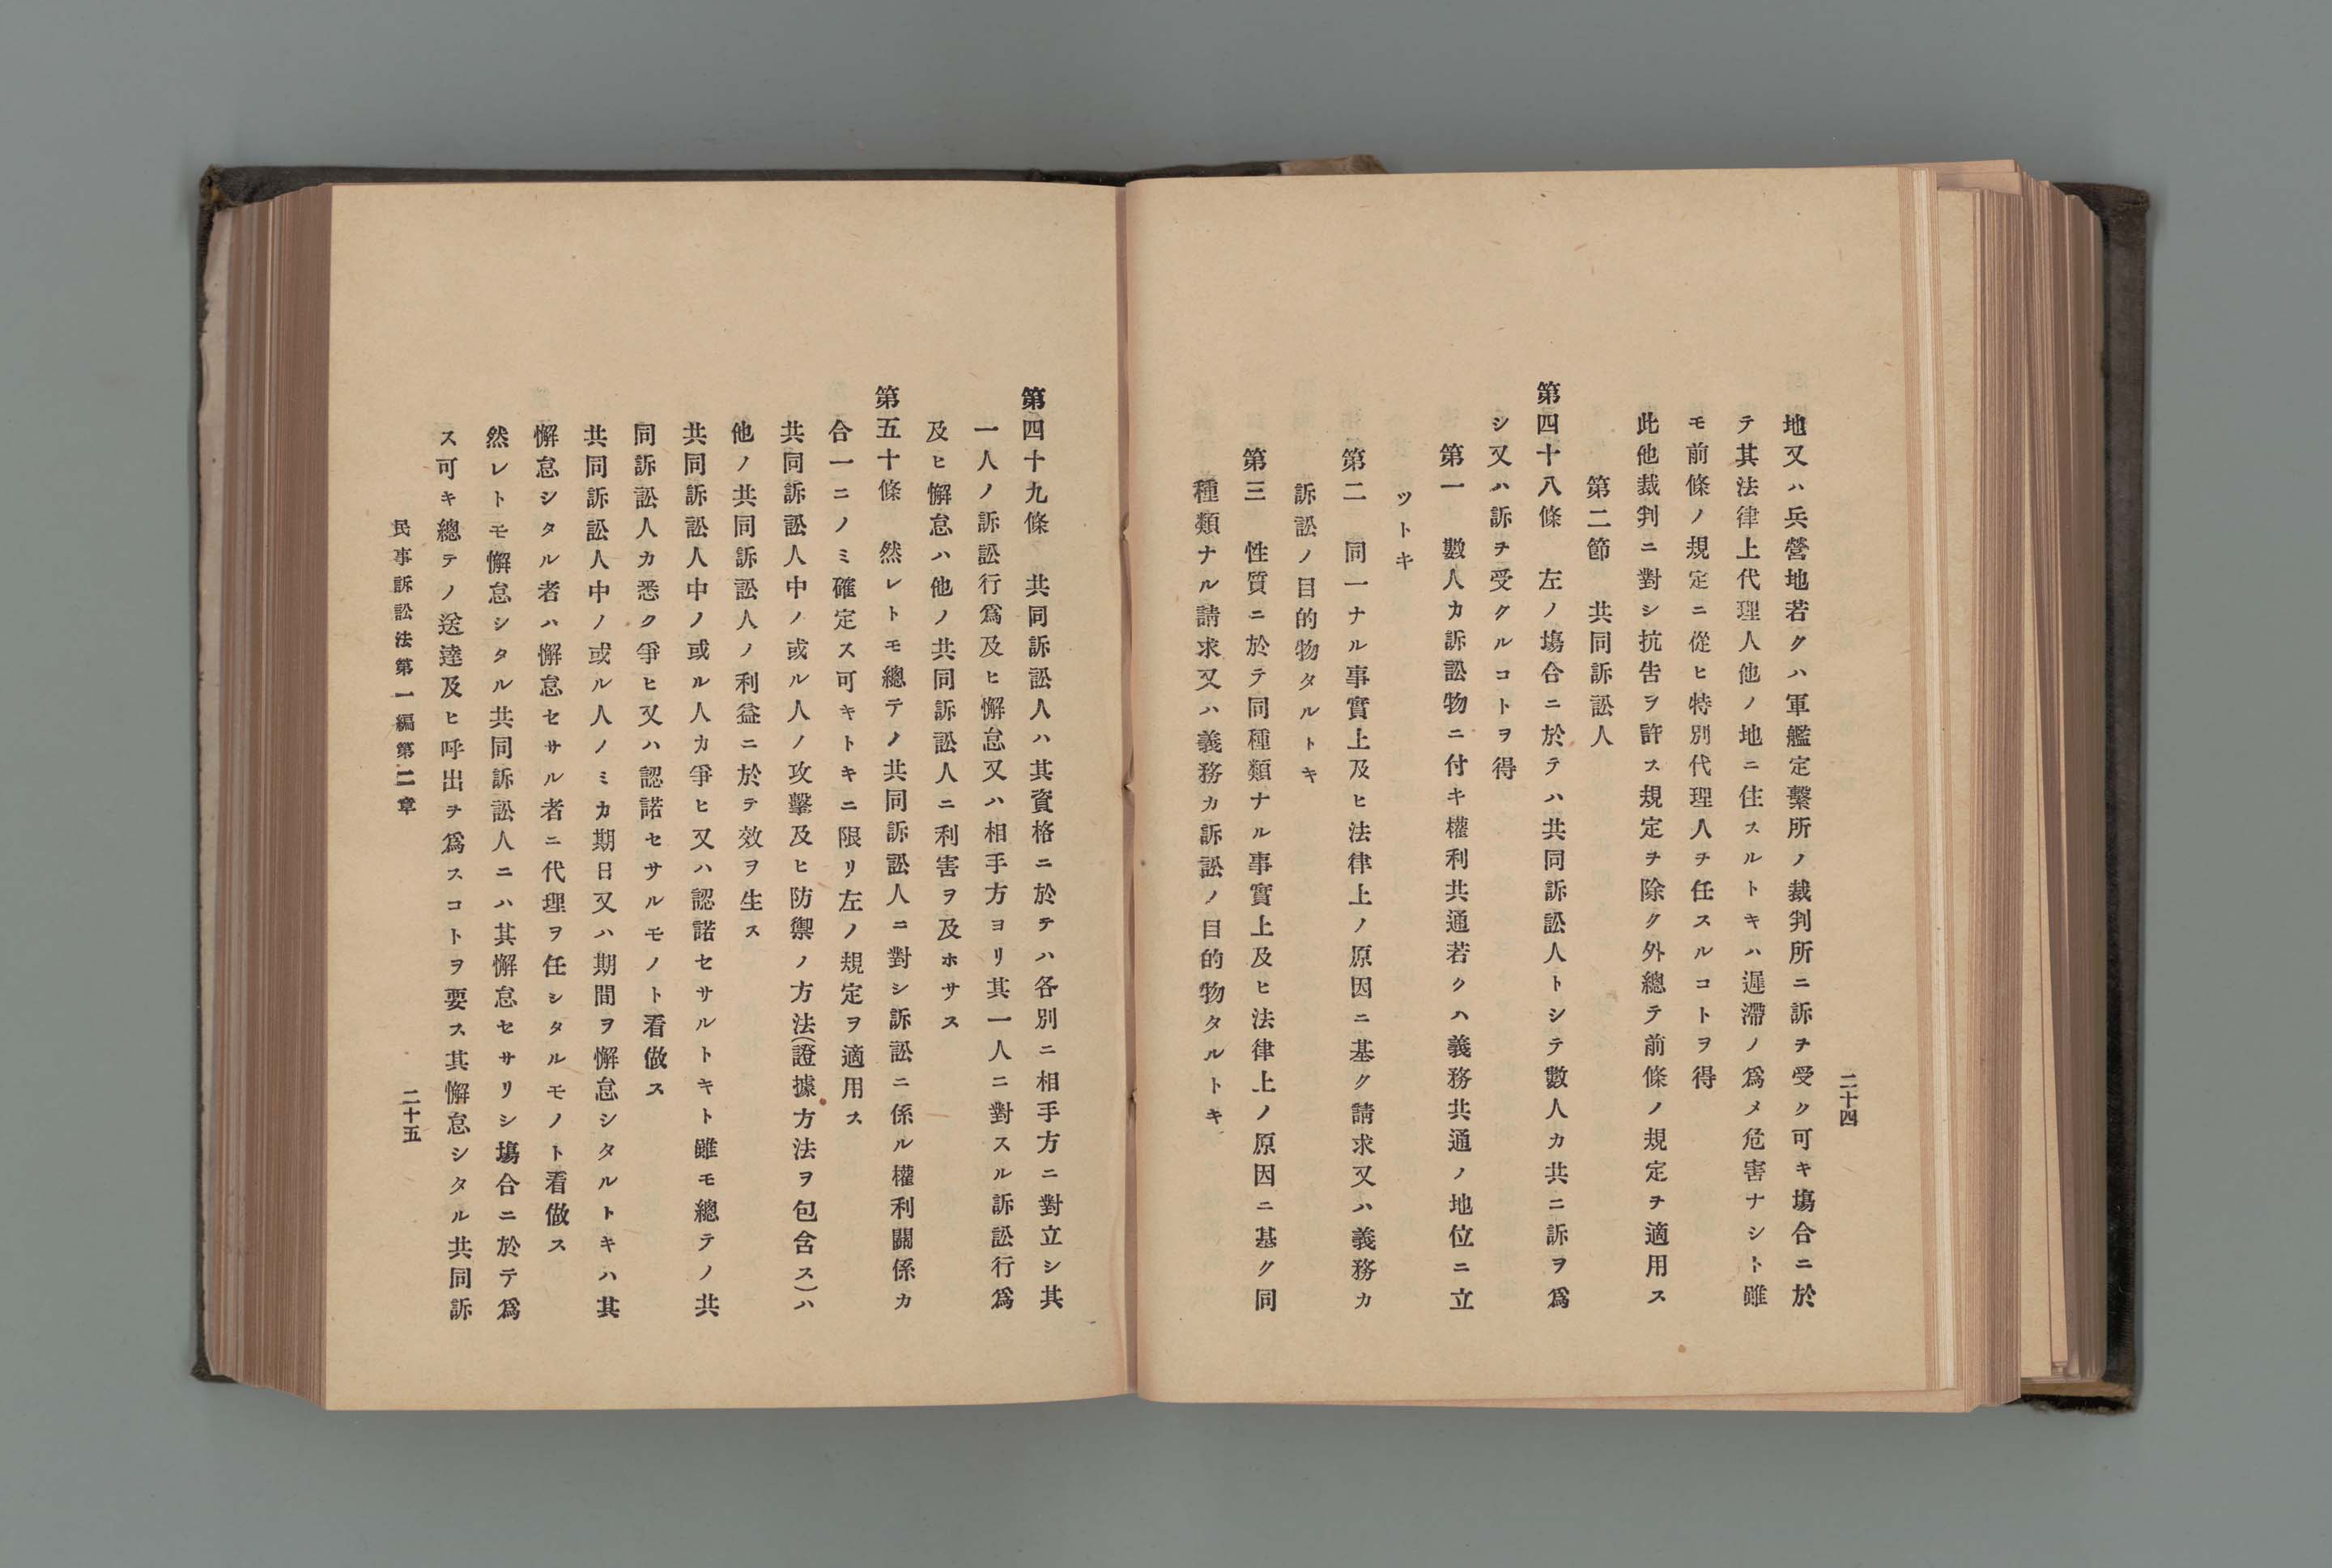 二十四
地又ハ兵營地若クハ軍艦定繫所ノ裁判所ニ訴チ受ク可キ塲合ニ於
テ其法律上代理人他ノ地ニ住スルトキハ遲滯ノ爲メ危害ナシト雖
モ前條ノ規定ニ從ヒ特別代理人チ任スルコトヲ得
此他裁判ニ對シ抗告ヲ許ス規定チ除ク外總テ前條ノ規定ヲ適用ス
第二節　共同訴訟人
第四十八條　左ノ塲合ニ於テハ共同訴訟人トシテ數人カ共ニ訴ヲ爲
シ又ハ訴チ受クルコトヲ得
第一　數人カ訴訟物ニ付キ權利共通若クハ義務共通ノ地位ニ立
ツトキ
第二　同一ナル事實上及ヒ法律上ノ原因ニ基ク請求又ハ義務カ
訴訟ノ目的物タルトキ
第三　性質ニ於テ同種類ナル事實上及ヒ法律上ノ原因ニ基ク同
種類ナル請求又ハ義務カ訴訟ノ目的物タルトキ
第四十九條　共同訴訟人ハ其資格ニ於テハ各別ニ相手方ニ對立シ其
一人ノ訴訟行爲及ヒ懈怠又ハ相手方ヨリ其一人ニ對スル訴訟行爲
及ヒ懈怠ハ他ノ共同訴訟人ニ利害ヲ及ホサス
第五十條　然レトモ總テノ共同訴訟人ニ對シ訴訟ニ係ル權利關係カ
合一ニノミ確定ス可キトキニ限リ左ノ規定ヲ適用ス
共同訴訟人中ノ或ル人ノ攻擊及ヒ防禦ノ方法(證據方法ヲ包含ス)ハ
他ノ共同訴訟人ノ利益ニ於テ效ヲ生ス
共同訴訟人中ノ或ル人カ爭ヒ又ハ認諾セサルトキト雖モ總テノ共
同訴訟人カ悉ク爭ヒ又ハ認諾セサルモノト看做ス
共同訴訟人中ノ或ル人ノミカ期日又ハ期間ヲ懈怠シタルトキハ其
懈怠シタル者ハ懈怠セサル者ニ代理ヲ任シタルモノト看做ス
然レトモ懈怠シタル共同訴訟人ニハ其懈怠セサリシ塲合ニ於テ爲
ス可キ總テノ送達及ヒ呼出チ爲スコトヲ要ス其懈怠シタル共同訴
民事訴訟法第一編第二章
二十五